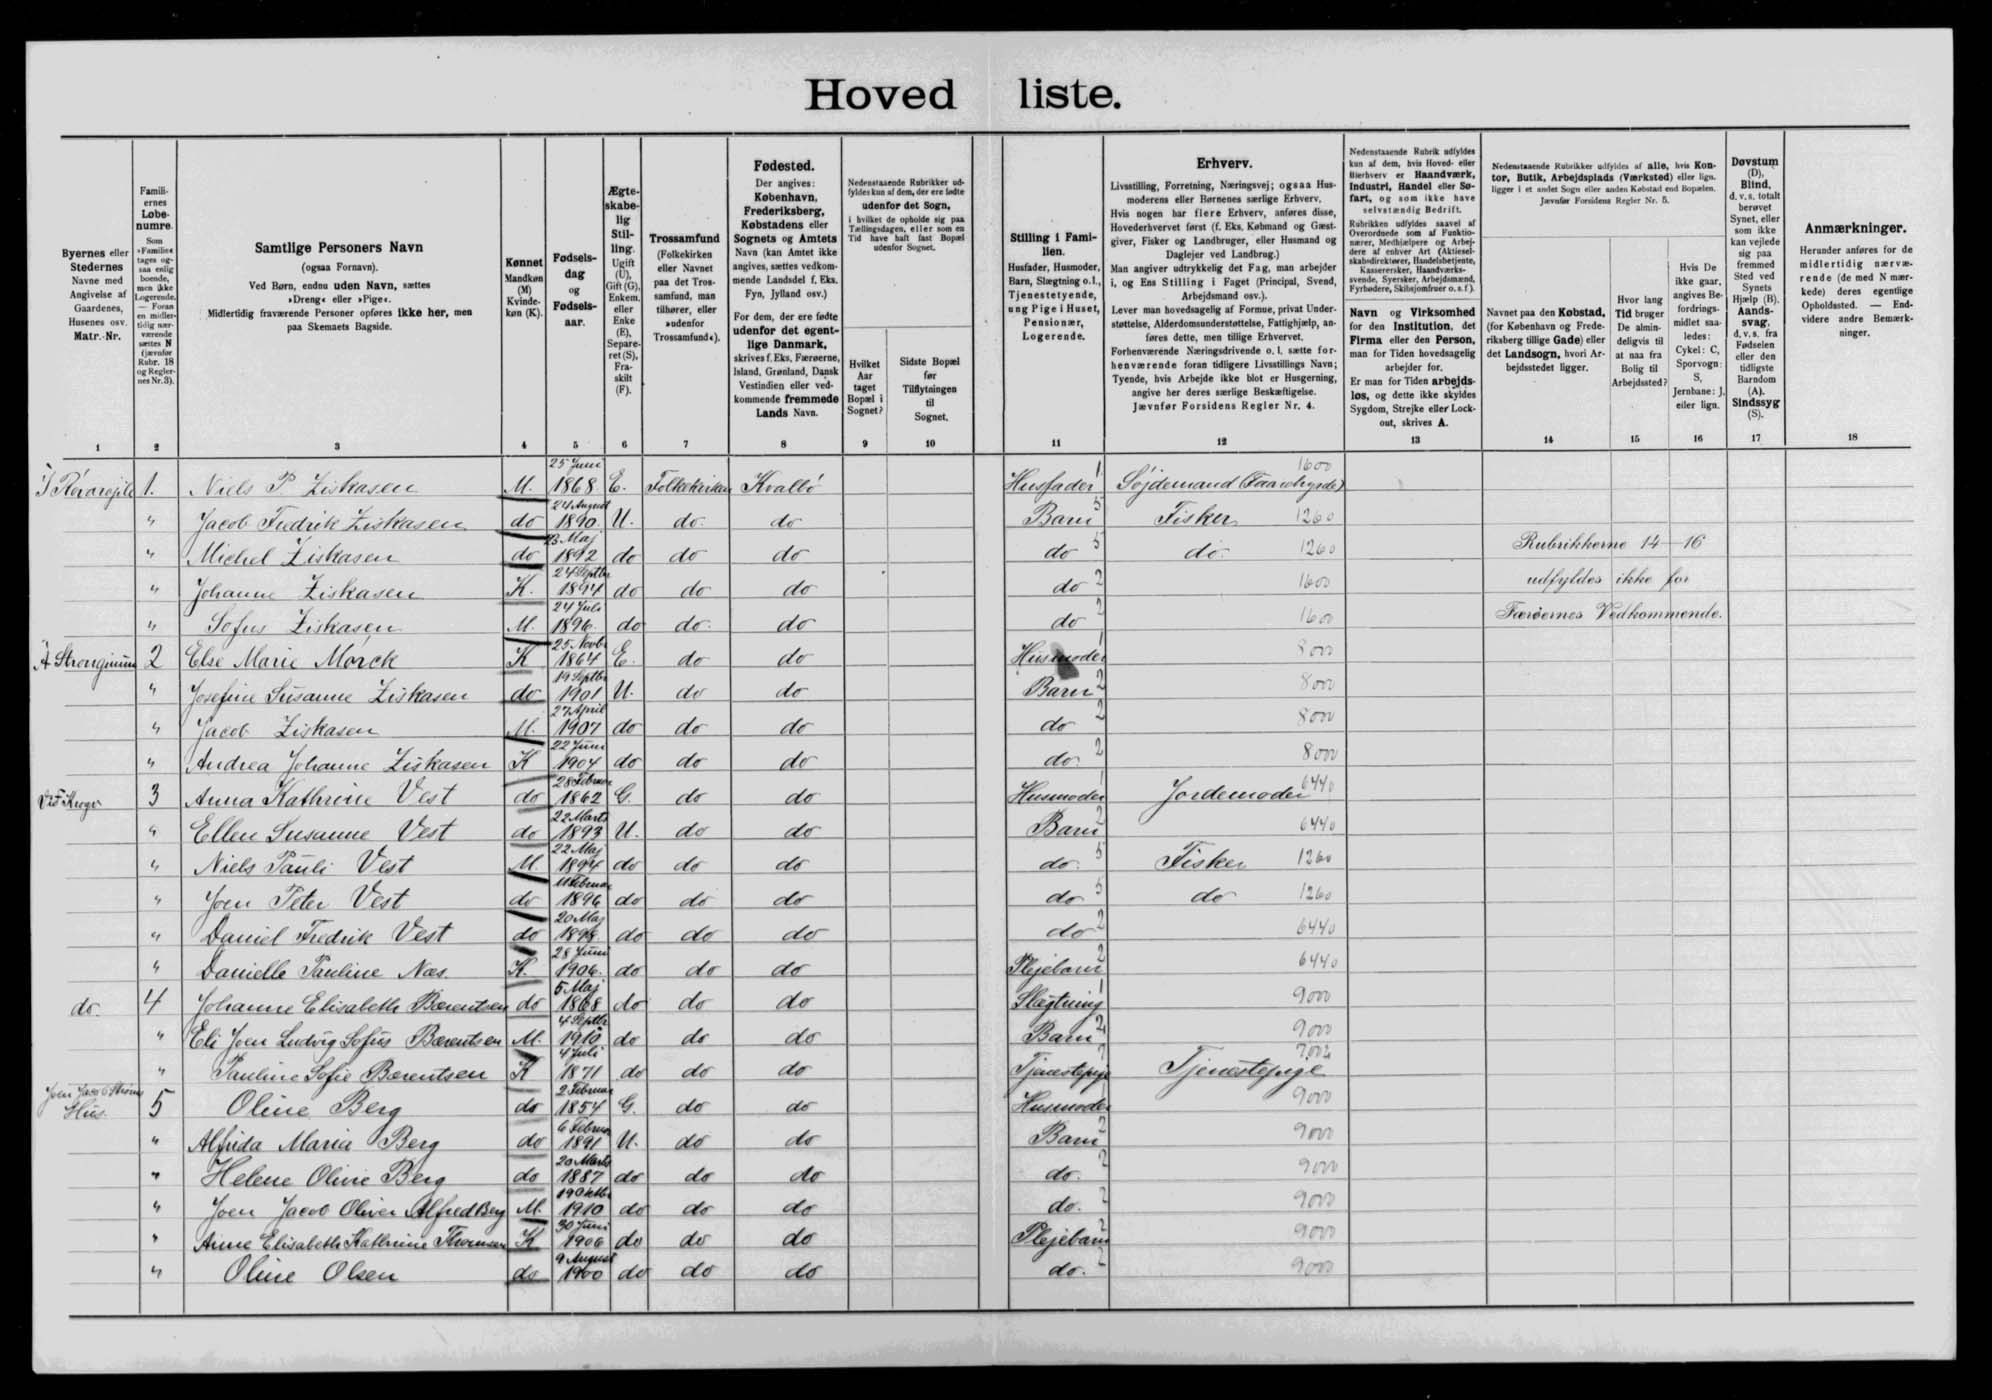 Hoved liste.
Byernes eller Stedernes Navne med Angivelse af Gaardenes, Husenes osv. Matr.-Nr.
Famili-ernes Løbe-numre. Som »Familie« tages og-saa enlig boende, men ikke Logerende. — Foran en midler-tidig nær-værende sættes N (jævnfør Rubr. 18 og Regler-nes Nr. 3).
Samtlige Personers Navn (ogsaa Fornavn). Ved Børn, endnu uden Navn, sættes »Dreng« eller »Pige«. Midlertidig fraværende Personer opføres ikke her, men paa Skemaets Bagside.
Kønnet Mandkøn (M) Kvinde-køn (K).
Fødsels-dag og Fødsels-aar.
Ægte-skabe-lig Stil-ling. Ugift (U), Gift (G), Enkem. eller Enke (E), Separe-ret (S), Fra-skilt (F).
Trossamfund (Folkekirken eller Navnet paa det Tros-samfund, man tilhører, eller »udenfor Trossamfund«).
Fødested. Der angives: København, Frederiksberg, Købstadens eller Sognets og Amtets Navn (kan Amtet ikke angives, sættes vedkom-mende Landsdel f. Eks. Fyn, Jylland osv.) For dem, der ere fødte udenfor det egent-lige Danmark, skrives f. Eks. Færøerne, Island, Grønland, Dansk Vestindien eller ved-kommende fremmede Lands Navn.
Nedenstaaende Rubrikker ud-fyldes kun af dem, der ere fødte udenfor det Sogn, i hvilket de opholde sig paa Tællingsdagen, eller som en Tid have haft fast Bopæl udenfor Sognet.
Hvilket Aar taget Bopæl i Sognet?
Sidste Bopæl før Tilflytningen til Sognet.
Stilling i Fami-lien. Husfader, Husmoder, Barn, Slægtning o. l., Tjenestetyende, ung Pige i Huset, Pensionær, Logerende.
Erhverv. Livsstilling, Forretning, Næringsvej; ogsaa Hus-moderens eller Børnenes særlige Erhverv. Hvis nogen har flere Erhverv, anføres disse, Hovederhvervet først (f. Eks. Købmand og Gæst-giver, Fisker og Landbruger, eller Husmand og Daglejer ved Landbrug.) Man angiver udtrykkelig det Fag, man arbejder i, og Ens Stilling i Faget (Principal, Svend, Arbejdsmand osv.). Lever man hovedsagelig af Formue, privat Under-støttelse, Alderdomsunderstøttelse, Fattighjælp, an-føres dette, men tillige Erhvervet. Forhenværende Næringsdrivende o. l. sætte for-henværende foran tidligere Livsstillings Navn; Tyende, hvis Arbejde ikke blot er Husgerning, angive her deres særlige Beskæftigelse. Jævnfør Forsidens Regler Nr. 4.
Nedenstaaende Rubrik udfyldes kun af dem, hvis Hoved- eller Bierhverv er Haandværk, Industri, Handel eller Sø-fart, og som ikke have selvstændig Bedrift.
Rubrikken udfyldes saavel af Overordnede som af Funktio-nærer, Medhjælpere og Arbej-dere af enhver Art (Aktiesel-skabsdirektører, Handelsbetjente, Kasserersker, Haandværks-svende, Syersker, Arbejdsmænd, Fyrbødere, Skibsjomfruer o. s. f.).
Navn og Virksomhed for den Institution, det Firma eller den Person, man for Tiden hovedsagelig arbejder for. Er man for Tiden arbejds-løs, og dette ikke skyldes Sygdom, Strejke eller Lock-out, skrives A.
Nedenstaaende Rubrikker udfyldes af alle, hvis Kon-tor, Butik, Arbejdsplads (Værksted) eller lign. ligger i et andet Sogn eller anden Købstad end Bopælen. Jævnfør Forsidens Regler Nr. 5.
Navnet paa den Købstad, (for København og Frede-riksberg tillige Gade) eller det Landsogn, hvori Ar-bejdsstedet ligger.
Hvor lang Tid bruger De almin-deligvis til at naa fra Bolig til Arbejdssted?
Hvis De ikke gaar, angives Be-fordrings-midlet saa-ledes: Cykel: C, Sporvogn: S, Jernbane: J, eller lign.
Døvstum (D), Blind, d. v. s. totalt berøvet Synet, eller som ikke kan vejlede sig paa fremmed Sted ved Synets Hjælp (B). Aands-svag, d. v. s. fra Fødselen eller den tidligste Barndom (A). Sindssyg (S).
Anmærkninger. Herunder anføres for de midlertidig nærvæ-rende (de med N mær-kede) deres egentlige Opholdssted. — End-videre andre Bemærk-ninger.
1 2 3 4 5 6 7 8 9 10 11 12 13 14 15 16 17 18
1. Niels P. Ziskasen M. 25 Juni 1868 E. Folkekirken Kvalbø Husfader 1 1600
" Jacob Fredrik Ziskasen do 24 August 1890 U. do. do Barn 5 Fisker 1260
" Michel Ziskasen do Maj 1892 do do do do 5 do. 1260 Rubrikkerne 14–16
" Johanne Ziskasen K. 24 Septbr 1894 do do do do 2 1600 udfyldes ikke for
" Sofus Ziskasen M. 24 Juli 1896 do do. do do 2 1600 Færøernes Vedkommende.
2 Else Marie Mørck K 25 Novbr 1864 E. do do Husmoder 1 8000
" Josefine Susanne Ziskasen do 19 Septbr 1901 U. do do Barn 2 8000
" Jacob Ziskasen M. 27 April 1907 do do do do 2 8000
" Andrea Johanne Ziskasen K 22 Juni 1904 do do do do. 2 8000
3 Anna Kathrine Vest do 28 Februar 1862 G. do do Husmoder 1 Jordemoder 6440
" Ellen Susanne Vest do 22 Marts 1893 U. do do Barn 2 6440
" Niels Pauli Vest M. 22 Maj 1894 do do do do. 5 Fisker 1260
" Joen Peter Vest do 11 Februar 1896 do do do do 5 do 1260
" Daniel Fredrik Vest do 20 Maj 1898 do do do do 2 6440
" Danielle Pauline Næs. K. 28 Juni 1906. do do do Plejebarn 2 6440
do. 4 Johanne Elisabeth Bærentsen do 5 Maj 1868 do do do Slægtning 1 9000
" Eli Joen Ludvig Sofus Bærentsen M. 4 Septbr 1910 do do do Barn 2 9000
" Pauline Sofie Bærentsen K 4 Juli 1871 do do do Tjenestepige Tjenestepige
Hus. 5 Oline Berg do 2 Februar 1854 G. do do Husmoder 1 9000
" Alfrida Maria Berg do 6 Februar 1891 U. do do Barn 2 9000
" Helene Olivie Berg do 20 Marts 1887 do do do do. 2 9000
" Joen Jacob Oliver Alfred Berg M. 19 Oktbr 1910 do do do do. 2 9000
" Anne Elisabeth Kathrine Thomsen K 30 Juni 1906 do do do Plejebarn 2 9000
" Oline Olsen do 9 August 1900 do do do do. 2 9000